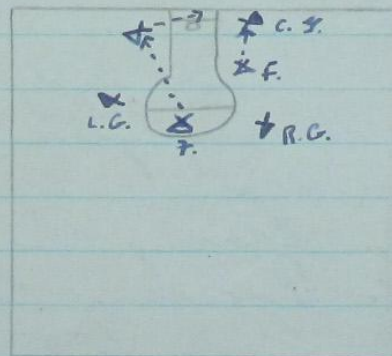 C. F.
F.
L.G.
R.G.
7.